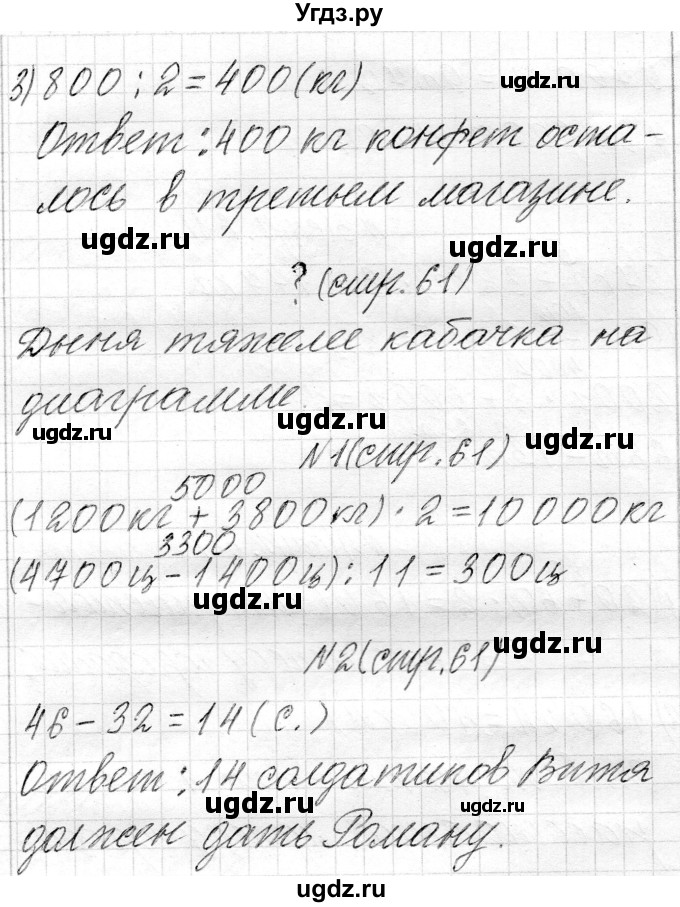 Угдз.ру
3) 800 : 2 = 400 (кг)
Ответ: 400 кг конфет оста-
лось в третьем магазине.
ugdz.ru
ugdz.ru
ugdz.ru
? (стр. 61)
Дыня тяжелее кабачка на
диаграмме.
ugdz.ru
ugdz.ru
ugdz.ru
N1(стр. 61)
5000
(1200кг + 3800кг) · 2 = 10000кг
3300
(4700ц - 1400ц) : 11 = 300ц
ugdz.ru
N2(стр. 61)
ugdz.ru
46 - 32 = 14 (с.)
Ответ: 14 солдатиков Витя
ugdz.ru
ugdz.ru
должен дать Роману.
ugdz.ru